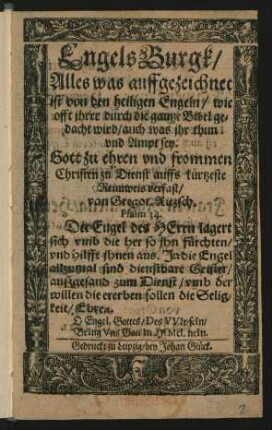 Engels Burgk/
Alles was auffgezeichnet
ist von den heiligen Engeln/ wie
offt ihrer durch die gantze Bibel ge-
dacht wird/ auch was ihr thun
und Ampt sey.
Gott zu ehren und frommen
Christen zu Dienst auffs kürtzeste
Reimweis verfast/
von Gregor. Ritzsch.
Psalm 34.
Der Engel des HErrn lagert
sich umb die her so ihn fürchten/
und hilfft ihnen aus. Ja die Engel
allzumal sind dienstbare Geister/
außgesand zum Dienst/ umb der
willen die ererben sollen die Selig-
keit/ Ebre.
O Engel Gottes/ Des
Bring Vns Gott in
Gedruckt zu Leipzig/ bey Johan Glück.